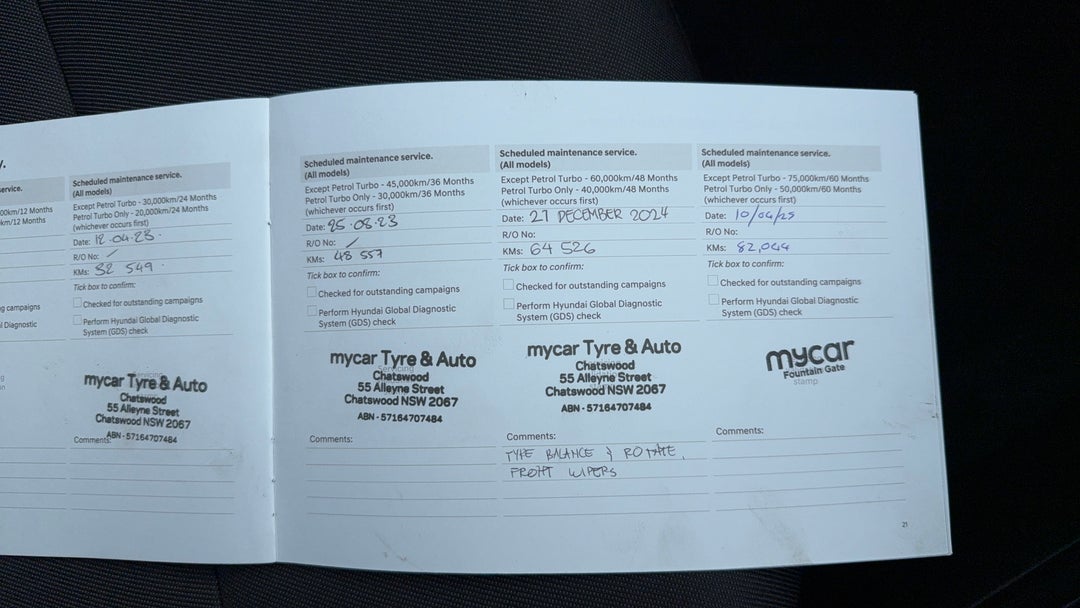 y.
ervice.
00km/12 Months
km/12 Months
g campaigns
l Diagnostic
Scheduled maintenance service.
(All models)
Except Petrol Turbo - 30,000km/24 Months
Petrol Turbo Only - 20,000km/24 Months
(whichever occurs first)
Date: 12.04.23.
R/O No: /
KMs: 32 549.
Tick box to confirm:
Checked for outstanding campaigns
Perform Hyundai Global Diagnostic
System (GDS) check
mycar Tyre & Auto
Chatswood
55 Alleyne Street
Chatswood NSW 2067
ABN - 57164707484
Comments:
Scheduled maintenance service.
(All models)
Except Petrol Turbo - 45,000km/36 Months
Petrol Turbo Only - 30,000km/36 Months
(whichever occurs first)
Date: 25.08.23
R/O No: /
KMs: 48 557
Tick box to confirm:
Checked for outstanding campaigns
Perform Hyundai Global Diagnostic
System (GDS) check
mycar Tyre & Auto
Chatswood
55 Alleyne Street
Chatswood NSW 2067
ABN - 57164707484
Comments:
Scheduled maintenance service.
(All models)
Except Petrol Turbo - 60,000km/48 Months
Petrol Turbo Only - 40,000km/48 Months
(whichever occurs first)
Date: 27 DECEMBER 2024
R/O No:
KMs: 64 526
Tick box to confirm:
Checked for outstanding campaigns
Perform Hyundai Global Diagnostic
System (GDS) check
mycar Tyre & Auto
Chatswood
55 Alleyne Street
Chatswood NSW 2067
ABN - 57164707484
Comments:
TYRE BALANCE & ROTATE,
FRONT WIPERS
Scheduled maintenance service.
(All models)
Except Petrol Turbo - 75,000km/60 Months
Petrol Turbo Only - 50,000km/60 Months
(whichever occurs first)
Date: 10/04/25
R/O No:
KMs: 82,044
Tick box to confirm:
Checked for outstanding campaigns
Perform Hyundai Global Diagnostic
System (GDS) check
mycar
Fountain Gate
stamp
Comments:
21